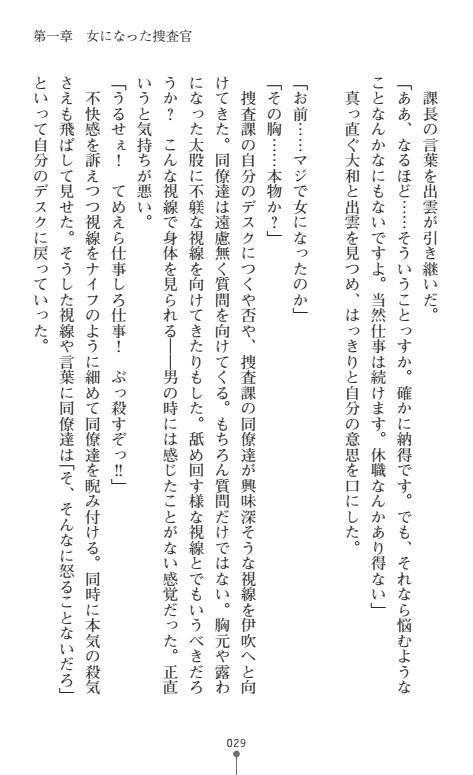 第一章　女になった捜査官
　課長の言葉を出雲が引き継いだ。
「ああ、なるほど……そういうことっすか。確かに納得です。でも、それなら悩むような
ことなんかなにもないですよ。当然仕事は続けます。休職なんかあり得ない」
　真っ直ぐ大和と出雲を見つめ、はっきりと自分の意思を口にした。
「お前……マジで女になったのか」
「その胸……本物か？」
　捜査課の自分のデスクにつくや否や、捜査課の同僚達が興味深そうな視線を伊吹へと向
けてきた。同僚達は遠慮無く質問を向けてくる。もちろん質問だけではない。胸元や露わ
になった太股に不躾な視線を向けてきたりもした。舐め回す様な視線とでもいうべきだろ
うか？　こんな視線で身体を見られる――男の時には感じたことがない感覚だった。正直
いうと気持ちが悪い。
「うるせぇ！　てめえら仕事しろ仕事！　ぶっ殺すぞっ!!」
　不快感を訴えつつ視線をナイフのように細めて同僚達を睨み付ける。同時に本気の殺気
さえも飛ばして見せた。そうした視線や言葉に同僚達は「そ、そんなに怒ることないだろ」
といって自分のデスクに戻っていった。
029